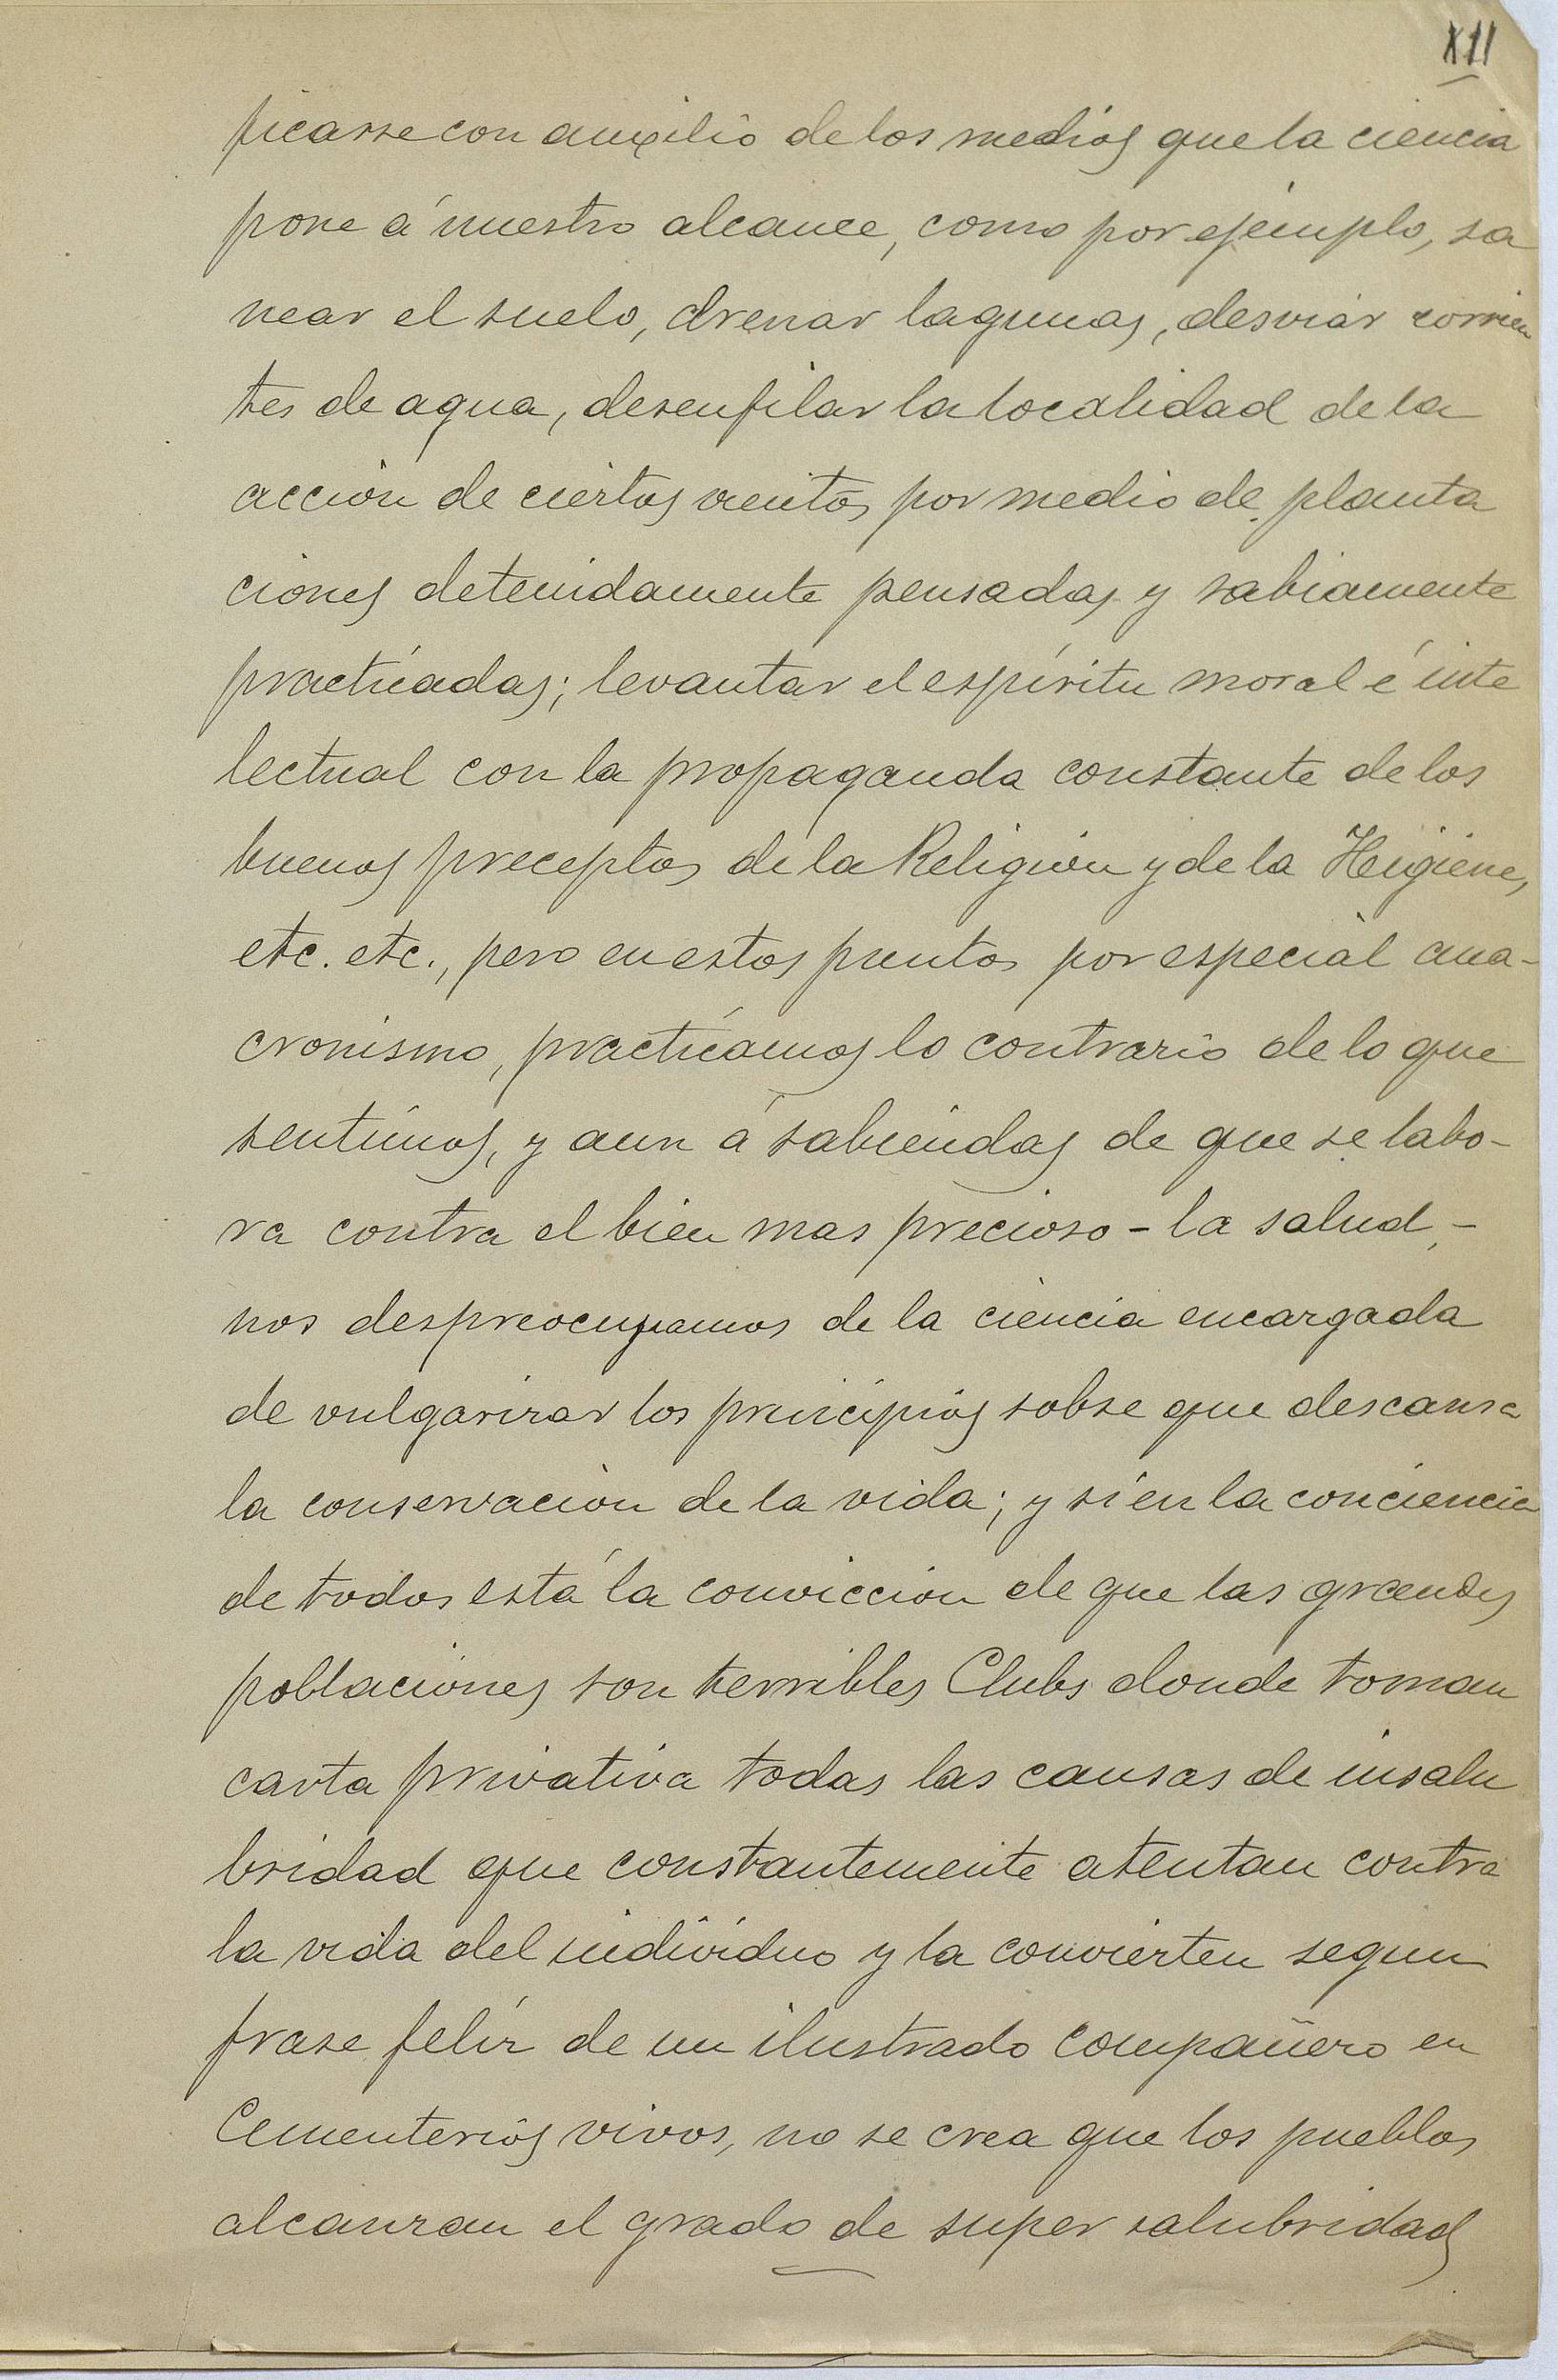 XII
ficarse con auxilio de los medios que la ciencia
pone á nuestro alcance, como por ejemplo, sa
near el suelo, drenar lagunas, desviar corrien
tes de agua, desenfilar la localidad de la
acción de ciertos vientos por medio de planta
ciones detenidamente pensadas y sabiamente
practicadas; levantar el espíritu moral é inte
lectual con la propaganda constante de los
buenos preceptos de la Religión y de la Higiene,
etc. etc., pero en estos puntos por especial ana-
cronismo, practicamos lo contrario de lo que
sentimos, y aun á sabiendas de que se labo-
ra contra el bien mas precioso - la salud, -
nos despreocupamos de la ciencia encargada
de vulgarizar los principios sobre que descansa
la conservación de la vida; y si en la conciencia
de todos está la convicción de que las grandes
poblaciones son terribles Clubs donde toman
carta privativa todas las causas de insalu
bridad que constantemente atentan contra
la vida del individuo y la convierten segun
frase feliz de un ilustrado compañero en
Cementerios vivos, no se crea que los pueblos
alcanzan el grado de super salubridad